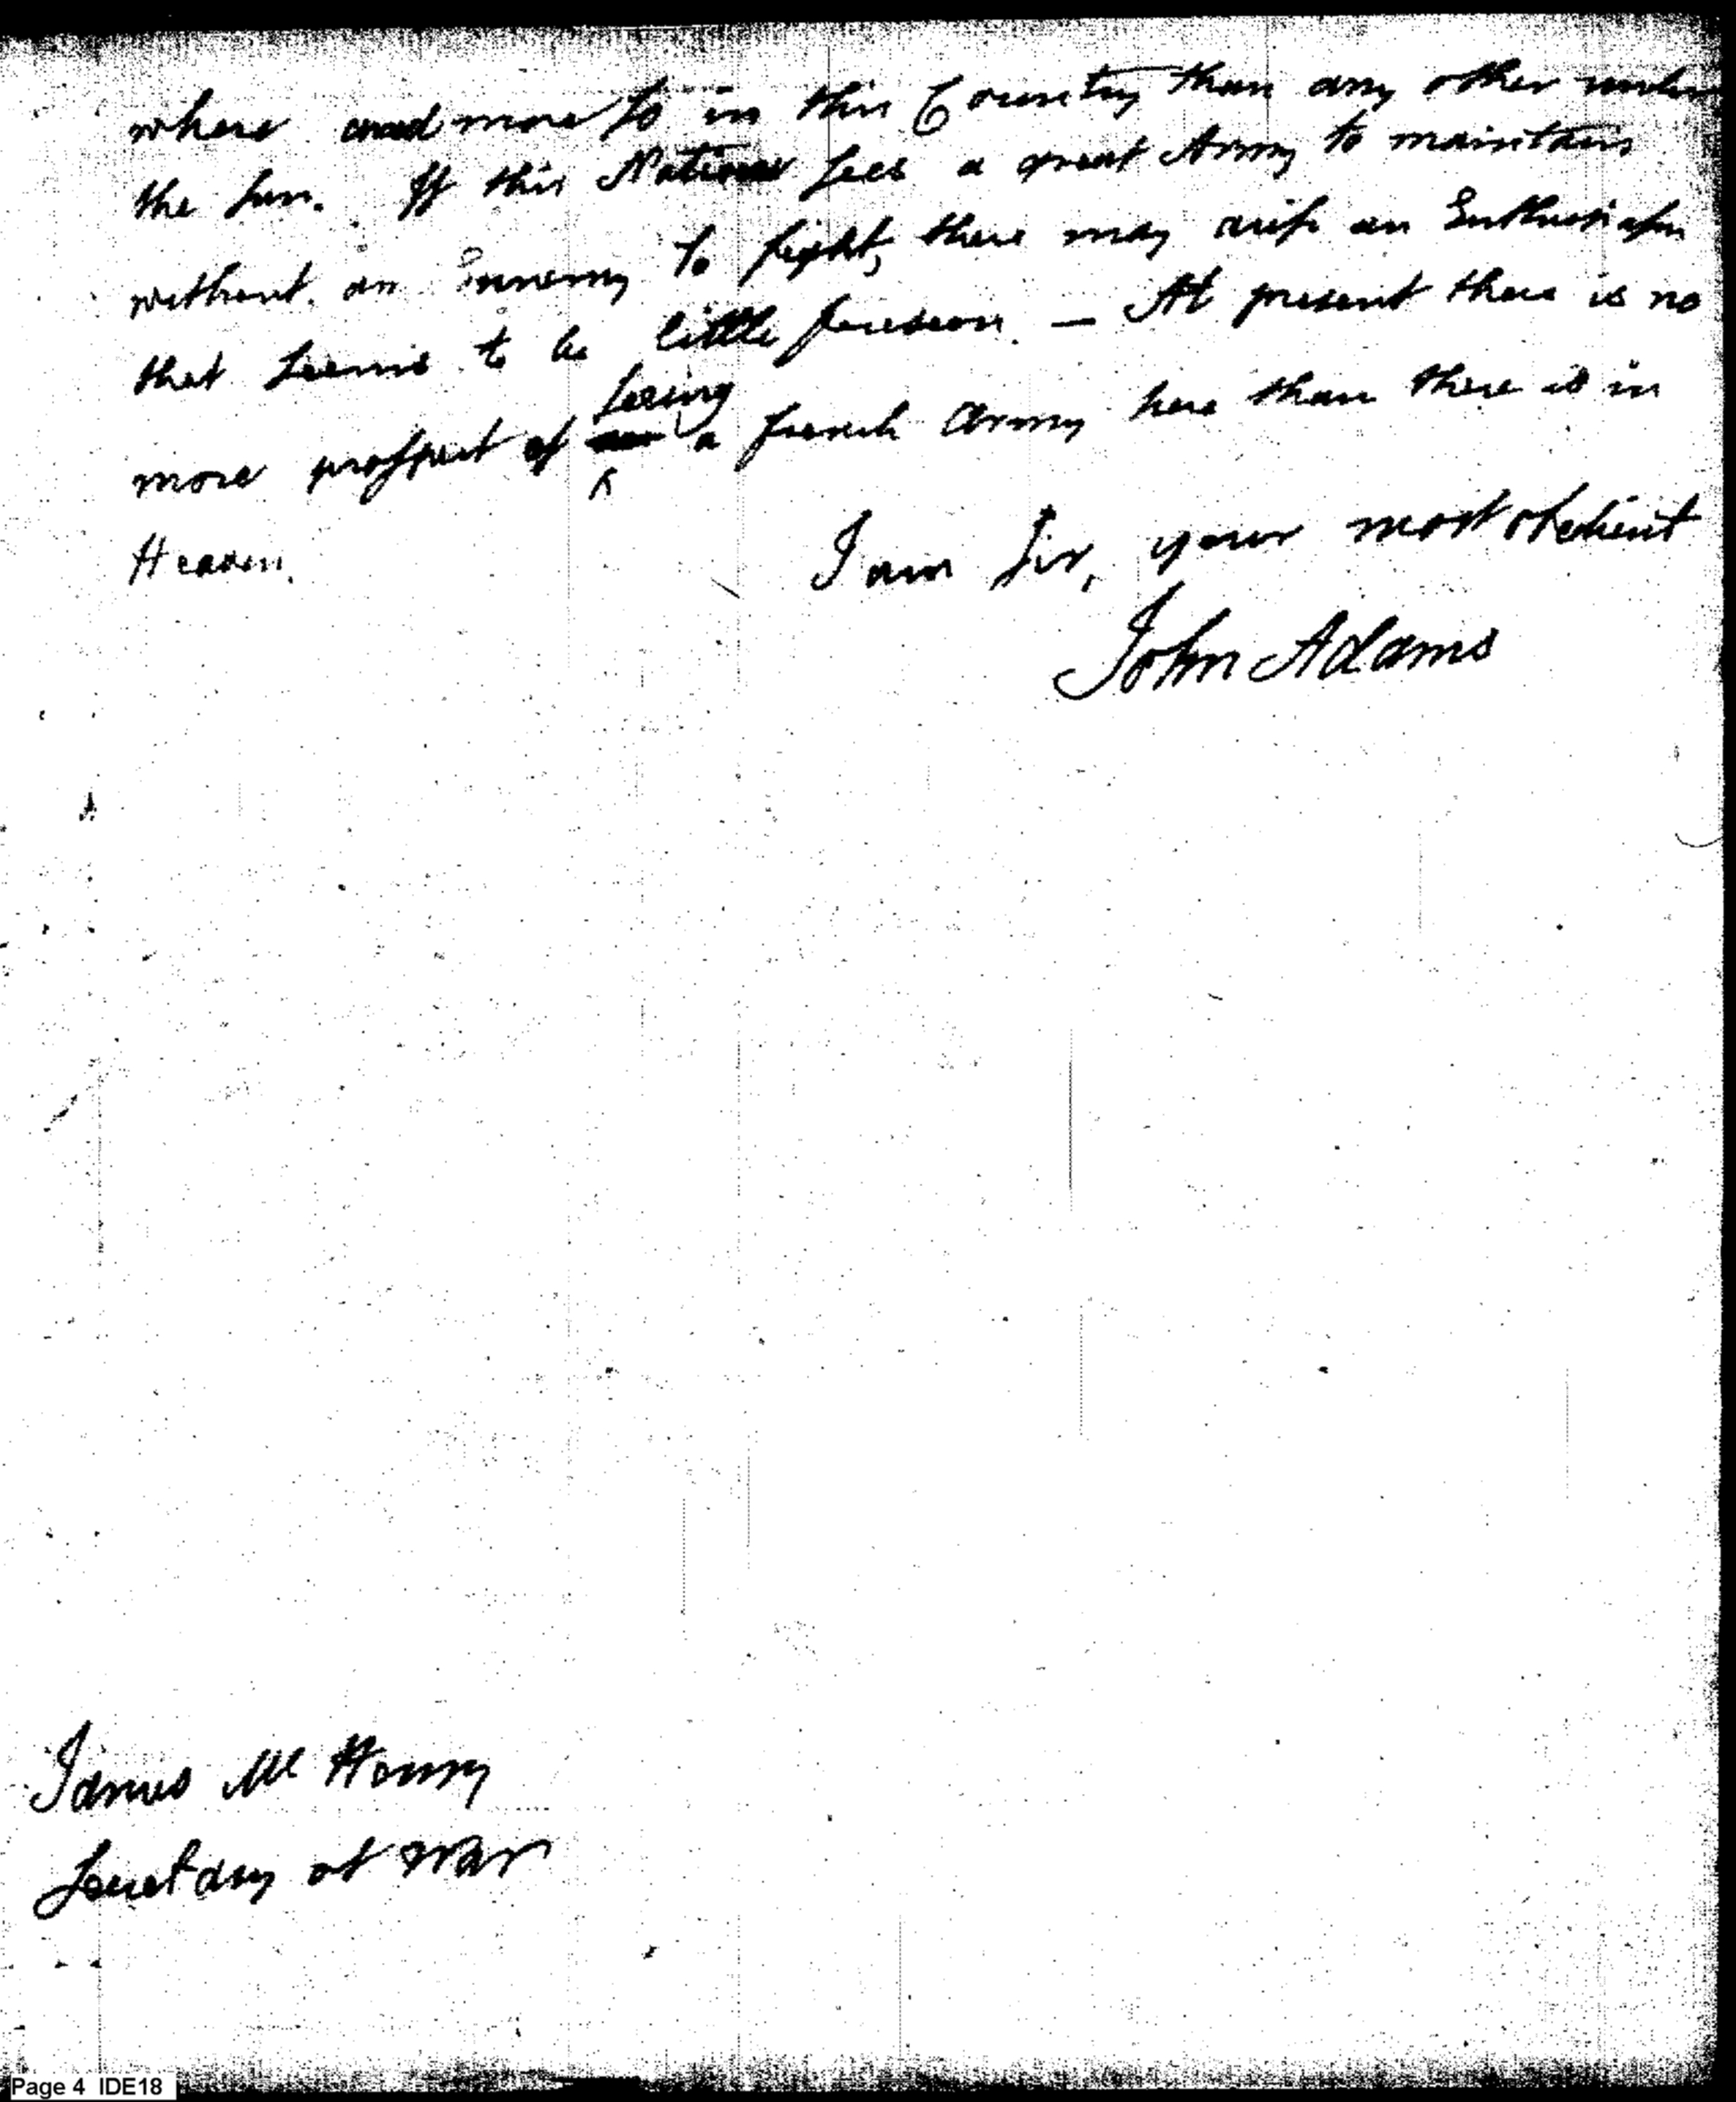 where and more so in this Country than any other under
the sun. If this Nation sees a great Army to maintain
without an Ennemy to fight, there may arise an Enthusiasm
that seems to be little foreseen. — At present there is no
seeing
more prospect of a french Army here than there is in
Heaven.
I am Sir, your most obedient
John Adams
James McHenry
Secretary at War
Page 4 IDE18